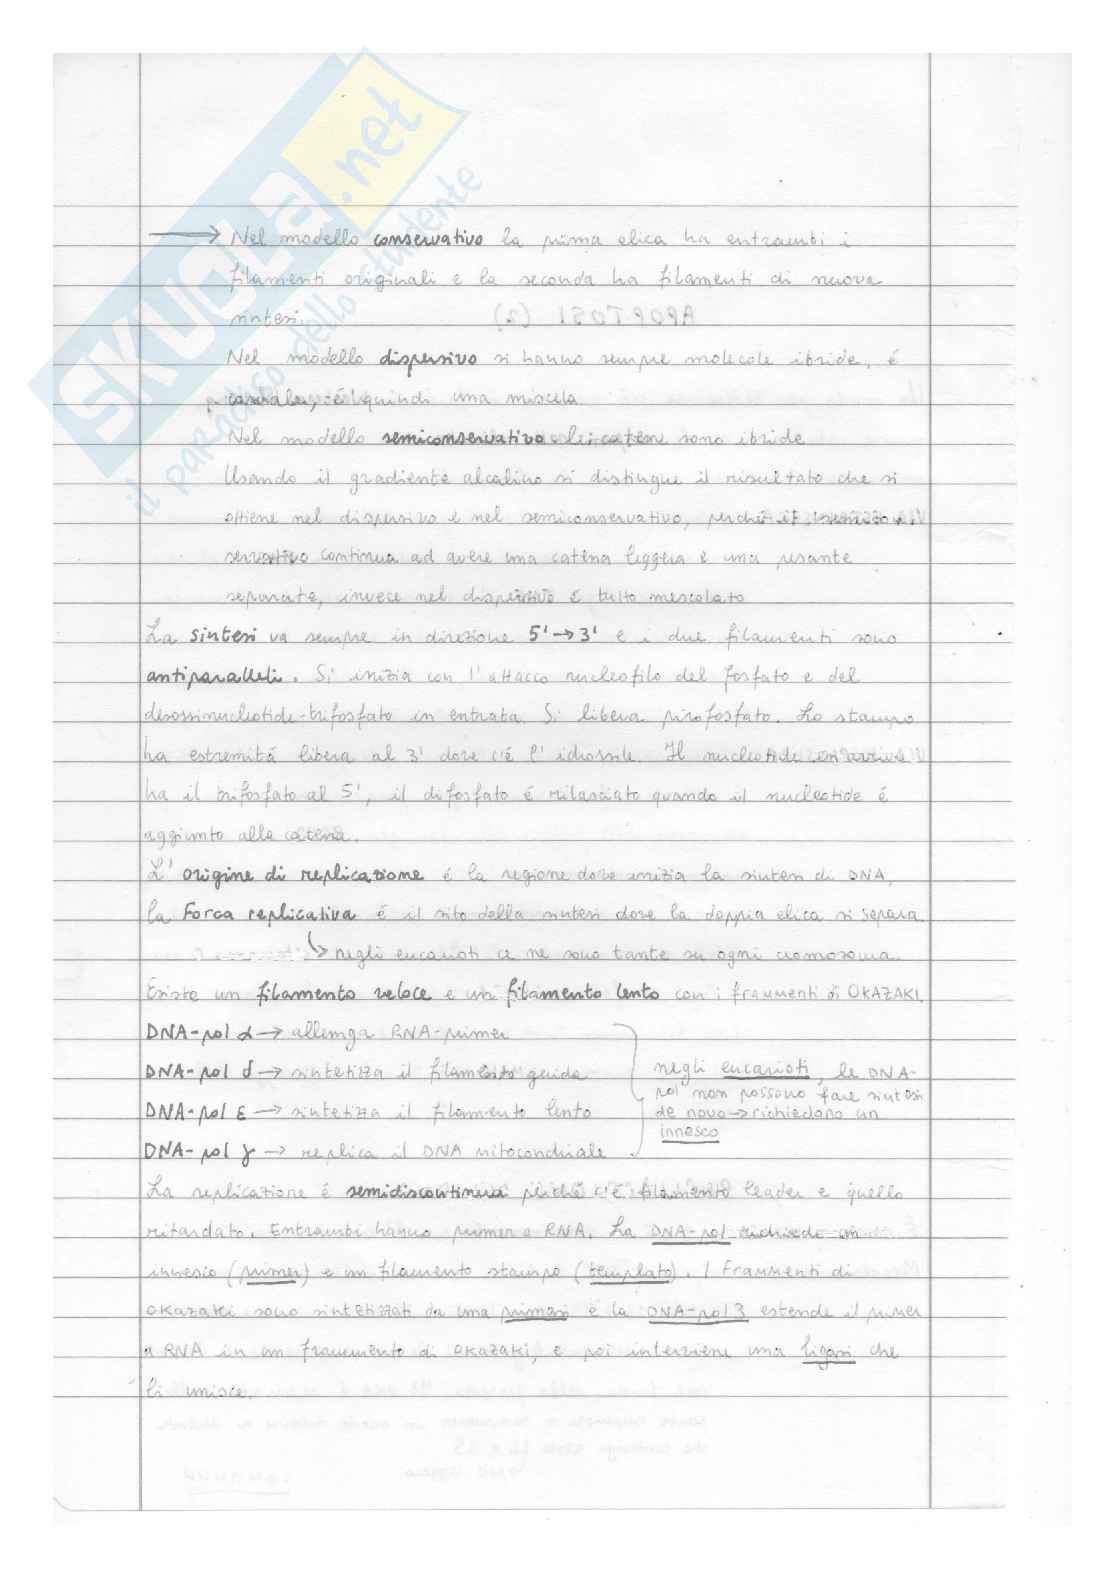 SKUOLA.net
il paradiso dello studente
→ Nel modello conservativo la prima elica ha entrambi i
filamenti originali e la seconda ha filamenti di nuova
sintesi.
Nel modello dispersivo si hanno sempre molecole ibride, é
casuale, é quindi una miscela
Nel modello semiconservativo le catene sono ibride
Usando il gradiente alcalino si distingue il risultato che si
ottiene nel dispersivo e nel semiconservativo, perché il semicon-
servativo continua ad avere una catena leggera e una pesante
separate, invece nel dispersivo é tutto mescolato
La sintesi va sempre in direzione 5'→3' e i due filamenti sono
antiparalleli. Si inizia con l'attacco nucleofilo del fosfato e del
desossinucleotide-trifosfato in entrata. Si libera pirofosfato. Lo stampo
ha estremitá libera al 3' dove c'é l'idrossile. Il nucleotide in arrivo
ha il trifosfato al 5', il difosfato é rilasciato quando il nucleotide é
aggiunto alla catena.
L'origine di replicazione é la regione dove inizia la sintesi di DNA,
la forca replicativa é il sito della sintesi dove la doppia elica si separa.
↳ negli eucarioti ce ne sono tante su ogni cromosoma.
Esiste un filamento veloce e un filamento lento con i frammenti di OKAZAKI.
DNA-pol α → allunga RNA-primer
DNA-pol δ → sintetizza il filamento guida
DNA-pol ε → sintetizza il filamento lento
DNA-pol γ → replica il DNA mitocondriale
negli eucarioti, le DNA-
pol non possono fare sintesi
de novo → richiedono un
innesco
La replicazione é semidiscontinua perché c'é filamento leader e quello
ritardato. Entrambi hanno primer a RNA. La DNA-pol richiede un
innesco (primer) e un filamento stampo (templato). I frammenti di
OKAZAKI sono sintetizzati da una primasi e la DNA-pol 3 estende il primer
a RNA in un frammento di OKAZAKI, e poi interviene una ligasi che
li unisce.